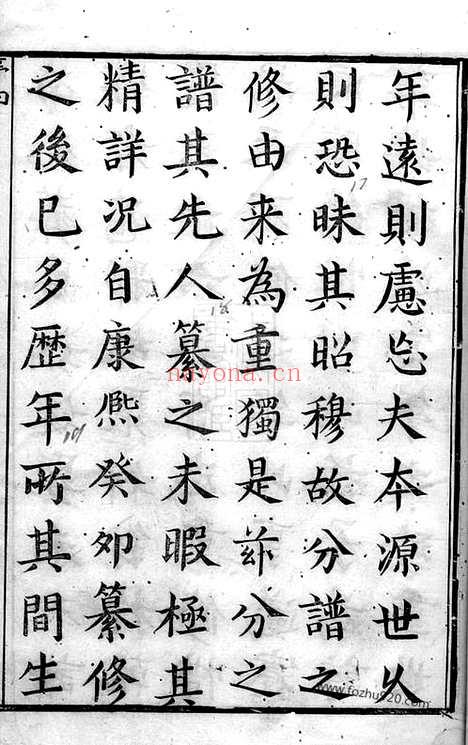 年遠則慮忘夫本源世乆
則恐昧其昭穆故分譜之
修由来為重獨是茲分之
譜其先人纂之未暇極其
精詳况自康熈癸夘纂修
之後已多歴年所其間生
17
18
19
nayona.cn
www.fozhu920.com